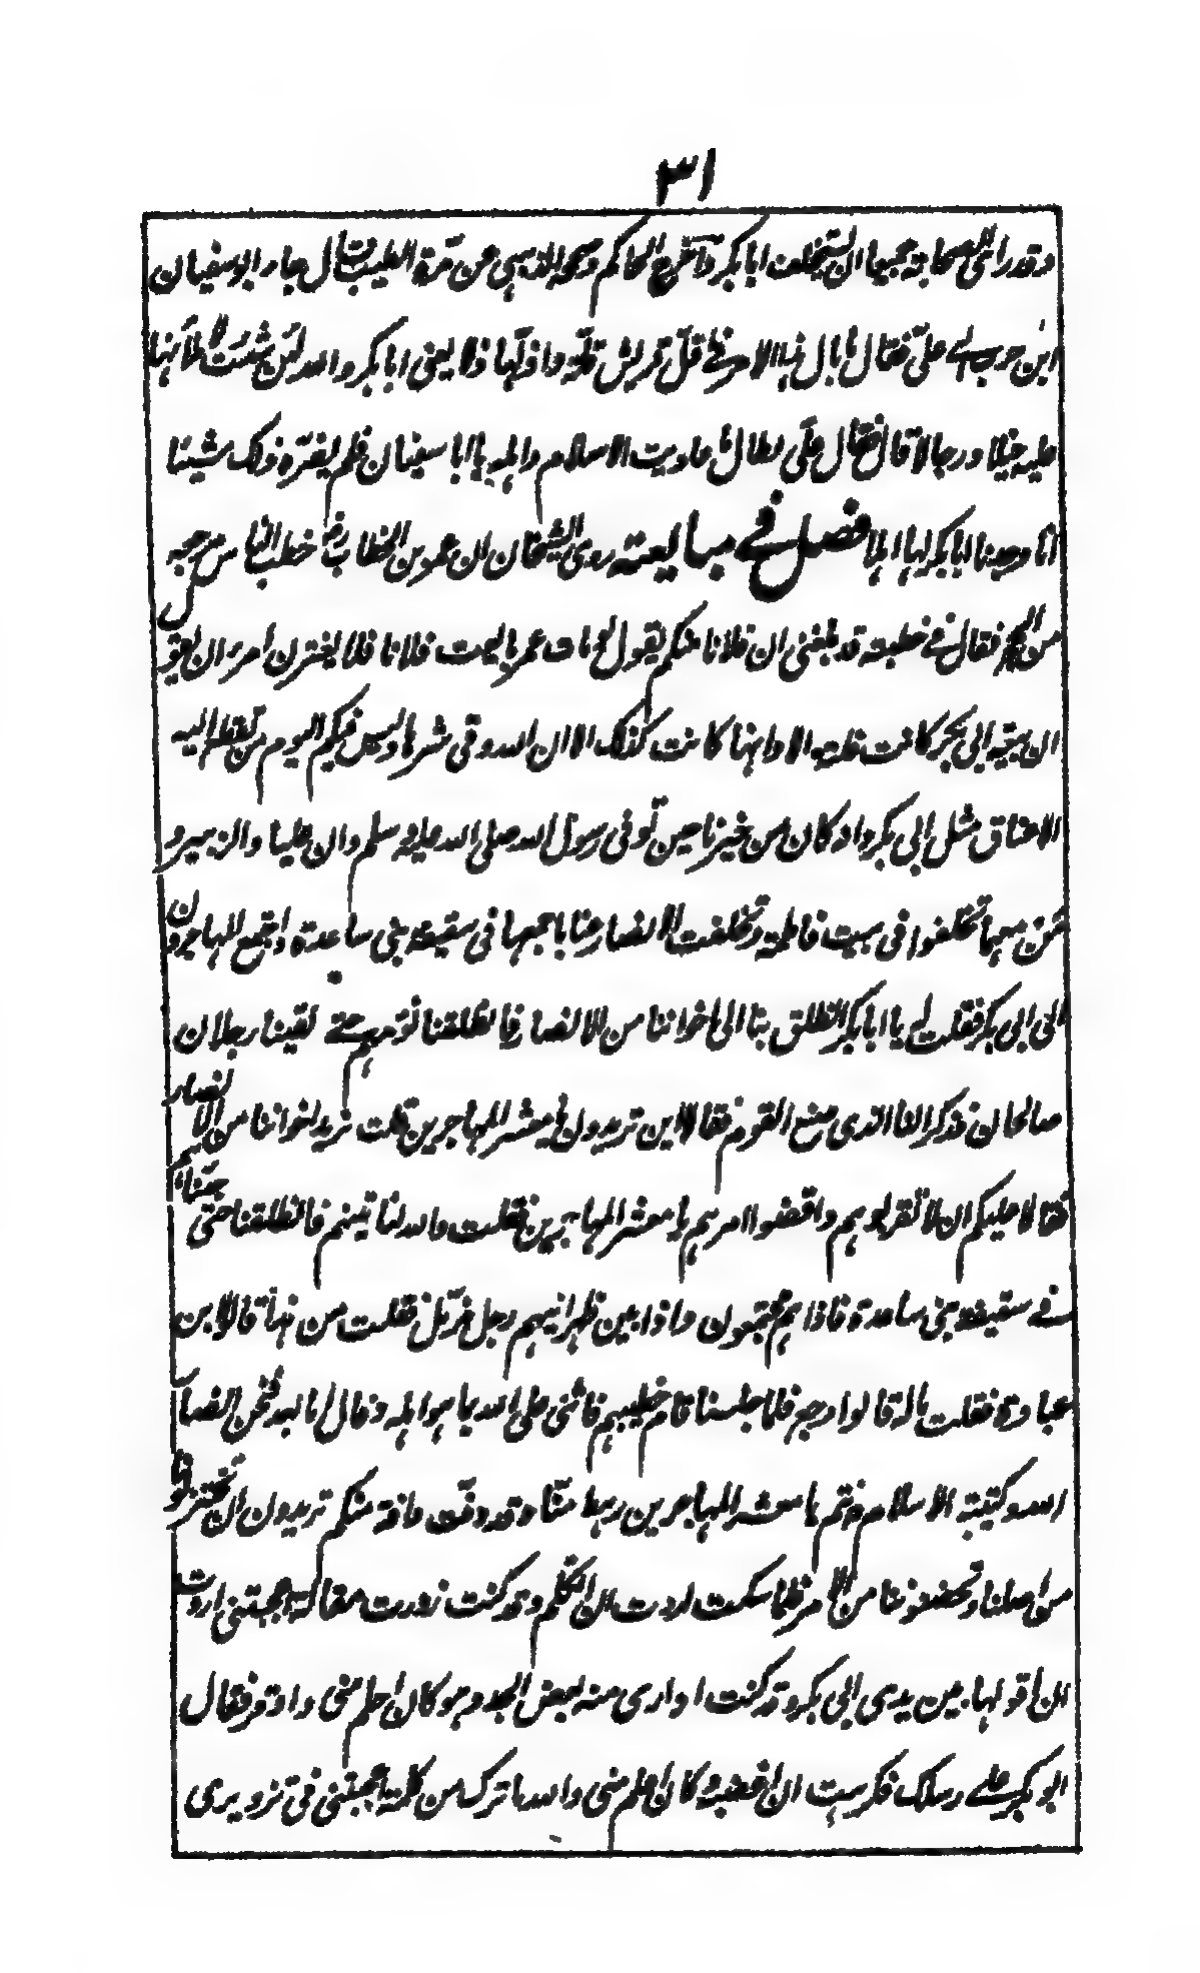 ٣١
وقد رأى الصحابة جميعا ان يستخلف ابا بكر وأخرج الحاكم وصححه الذهبي عن مرة الطيب قال جاء ابو سفيان
ابن حرب الى علي فقال ما بال هذا الامر في اقل قريش قلة واذلها ذلا يعني ابا بكر والله لئن شئت لاملأنها
عليه خيلا ورجالا قال فقال علي لطال ما عاديت الاسلام واهله يا ابا سفيان فلم يضره ذلك شيئا
انا وجدنا ابا بكر لها اهلا فصل في مبايعته روى الشيخان ان عمر بن الخطاب رض خطب الناس مرجعه
من الحج فقال في خطبته قد بلغني ان فلانا منكم يقول لو مات عمر بايعت فلانا فلا يغترن امرء ان يقول
ان بيعة ابي بكر كانت فلتة الا وانها كانت كذلك الا ان الله وقى شرها وليس فيكم اليوم من تقطع اليه
الاعناق مثل ابي بكر وانه كان من خيرنا حين توفى رسول الله صلى الله عليه وسلم وان عليا والزبير و
من معهما تخلفوا في بيت فاطمة وتخلفت الانصار عنا باجمعها في سقيفة بني ساعدة واجتمع المهاجرون
الى ابي بكر فقلت له يا ابا بكر انطلق بنا الى اخواننا من الانصار فانطلقنا نؤمهم حتى لقينا رجلان
صالحان فذكرا لنا الذي صنع القوم فقالا اين تريدون يا معشر المهاجرين قلت نريد اخواننا من الانصار
فقالا عليكم ان لا تقربوهم واقضوا امرهم يا معشر المهاجرين فقلت والله لنأتينهم فانطلقنا حتى جئناهم
في سقيفة بني ساعدة فاذا هم مجتمعون واذا بين ظهرانيهم رجل مزمل فقلت من هذا قالوا ابن
عبادة فقلت ما له قالوا وجع فلما جلسنا قام خطيبهم فاثنى على الله بما هو اهله وقال اما بعد فنحن انصار
الله وكتيبة الاسلام وانتم يا معشر المهاجرين رهط منا وقد دفت دافة منكم تريدون ان تختزلونا
من اصلنا وتحضنونا من الامر فلما سكت اردت ان اتكلم وقد كنت زورت مقالة اعجبتني اردت
ان اقولها بين يدي ابي بكر وقد كنت اداري منه بعض الحد وهو كان احلم مني واوقر فقال
ابو بكر على رسلك فكرهت ان اغضبه وكان اعلم مني والله ما ترك من كلمة اعجبتني في تزويري